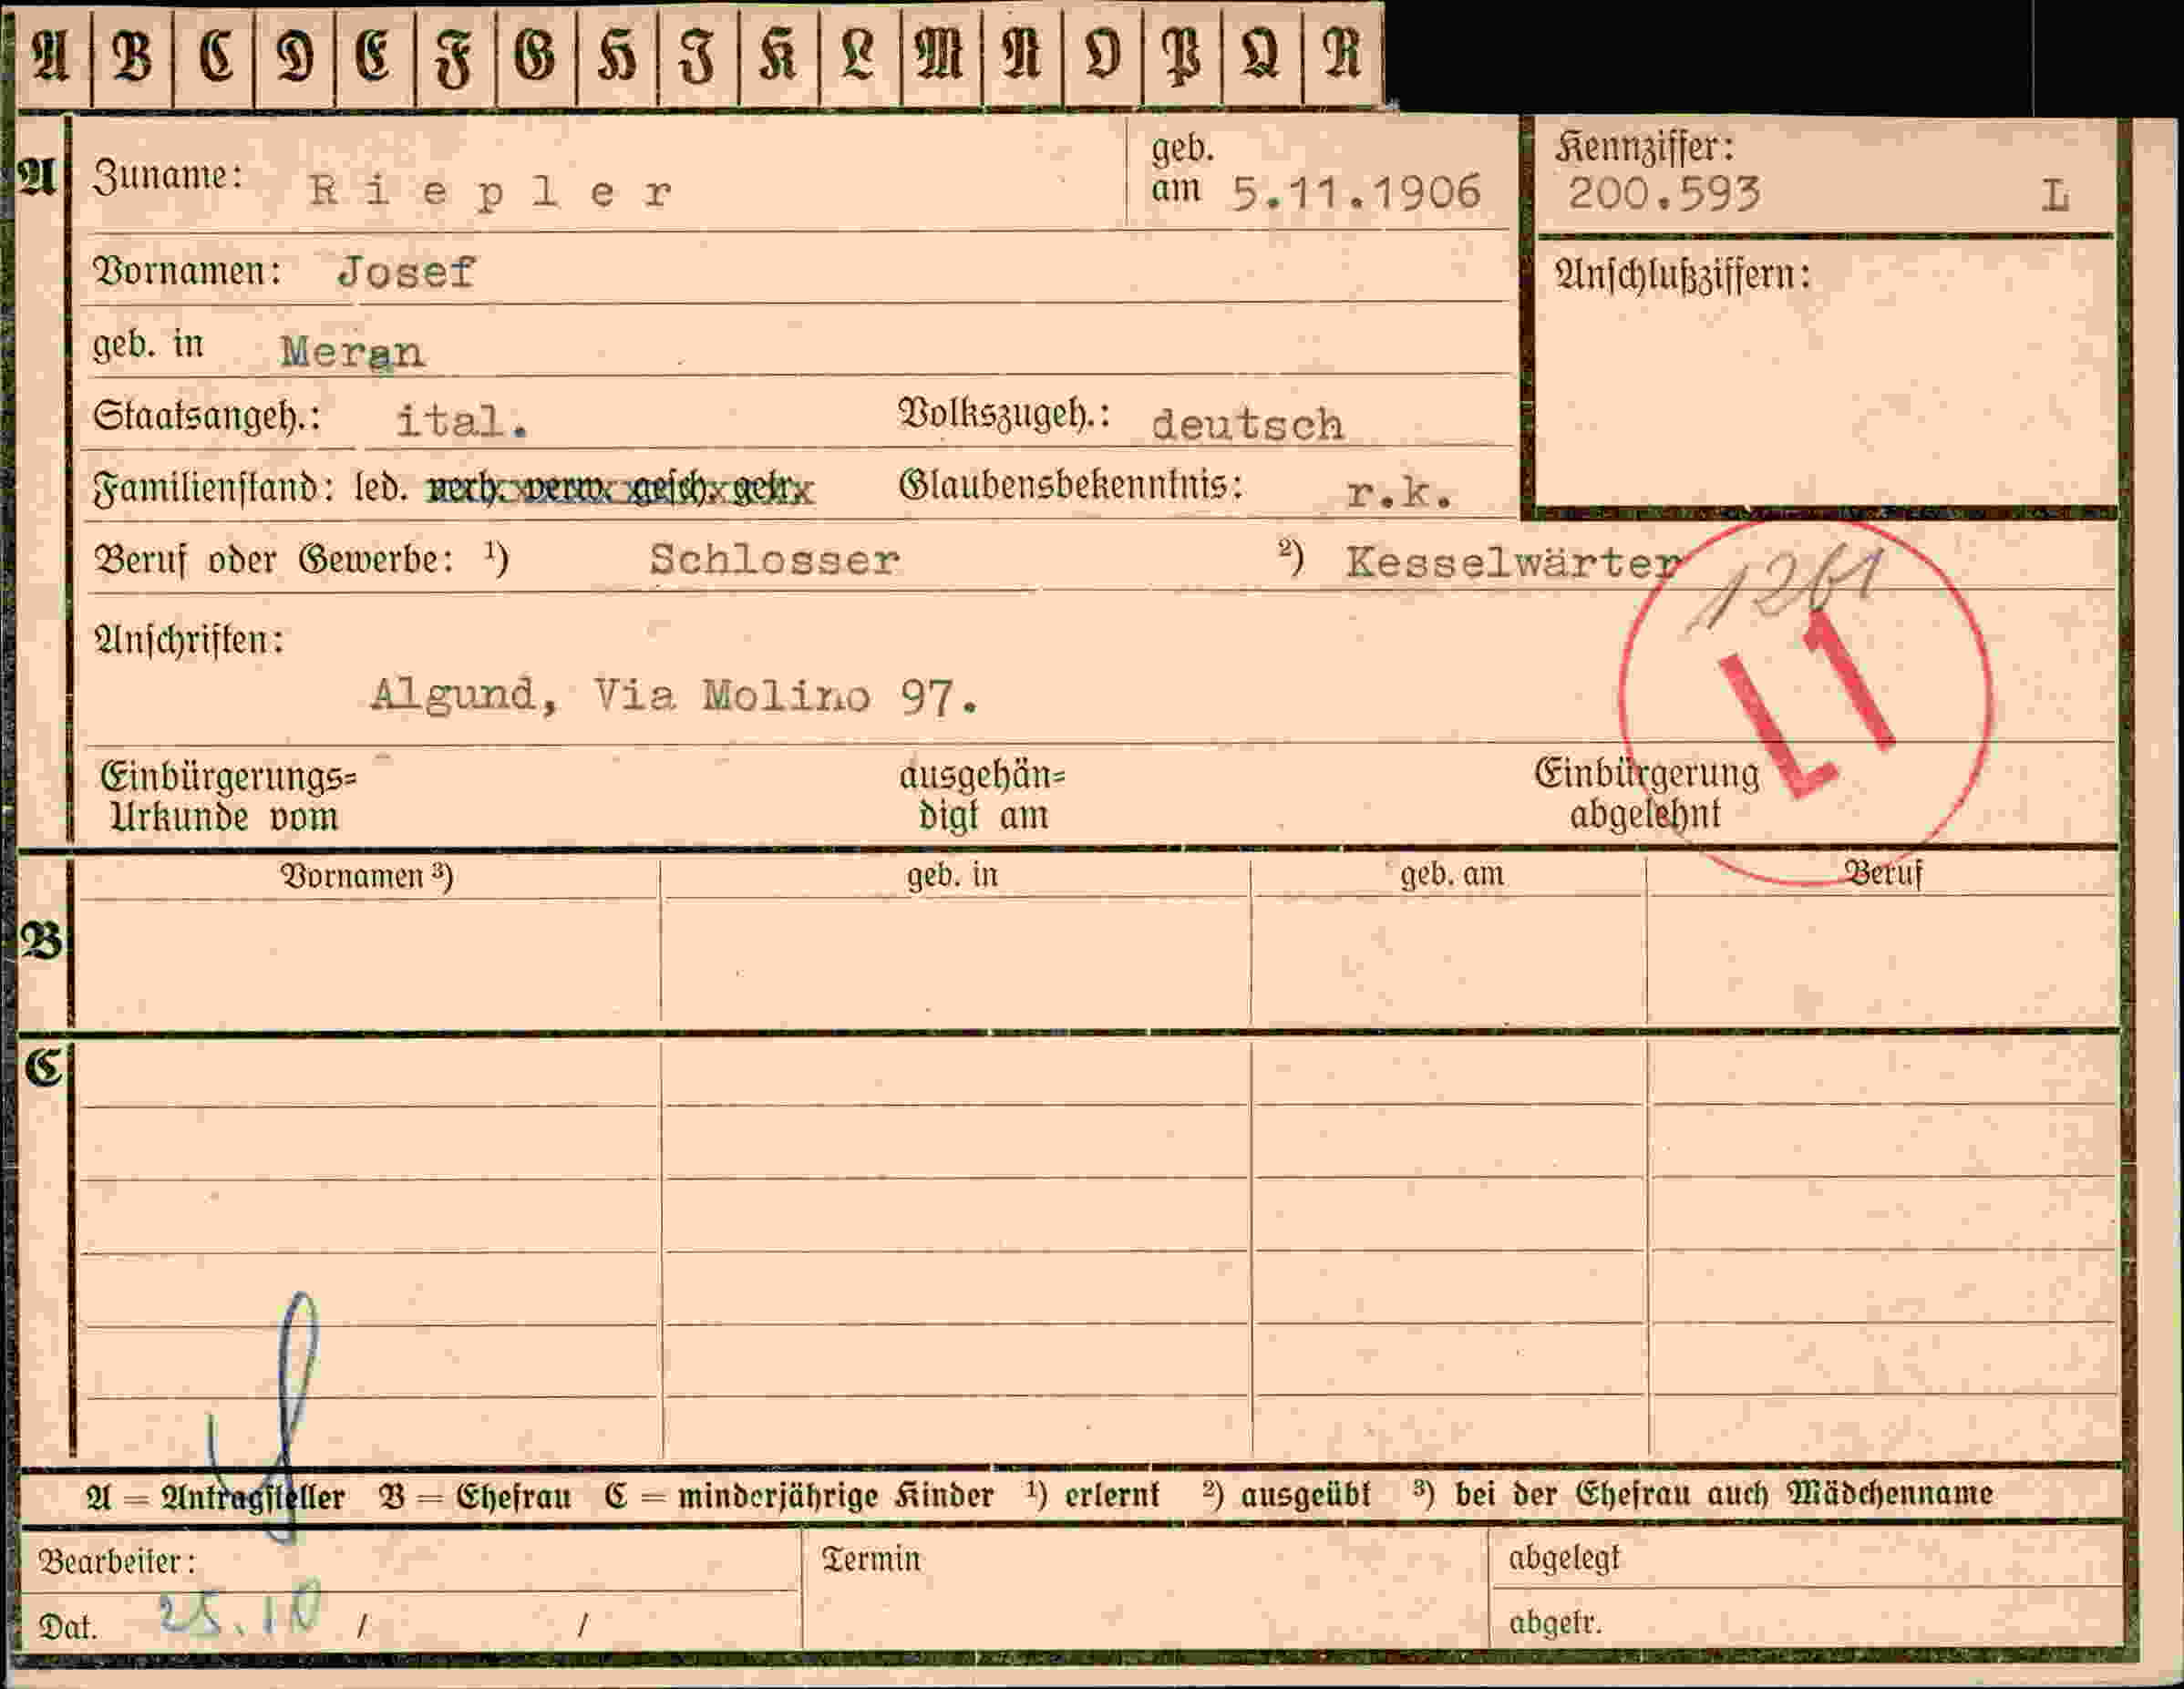 A B C D E F G H I K L M N O P Q R
A Zuname: Riepler geb. am 5.11.1906 Kennziffer: 200.593 L
Vornamen: Josef Anschlußziffern:
geb. in Meran
Staatsangeh.: ital. Volkszugeh.: deutsch
Familienstand: led. verh. verw. gesch. getr. Glaubensbekenntnis: r.k.
Beruf oder Gewerbe: ¹) Schlosser ²) Kesselwärter
1261
Anschriften:
L1
Algund, Via Molino 97.
Einbürgerungs= ausgehän= Einbürgerung
Urkunde vom digt am abgelehnt
Vornamen ³) geb. in geb. am Beruf
B
C
A = Antragsteller B = Ehefrau C = minderjährige Kinder ¹) erlernt ²) ausgeübt ³) bei der Ehefrau auch Mädchenname
Bearbeiter: Termin abgelegt
Dat. 25.10 / / abgetr.